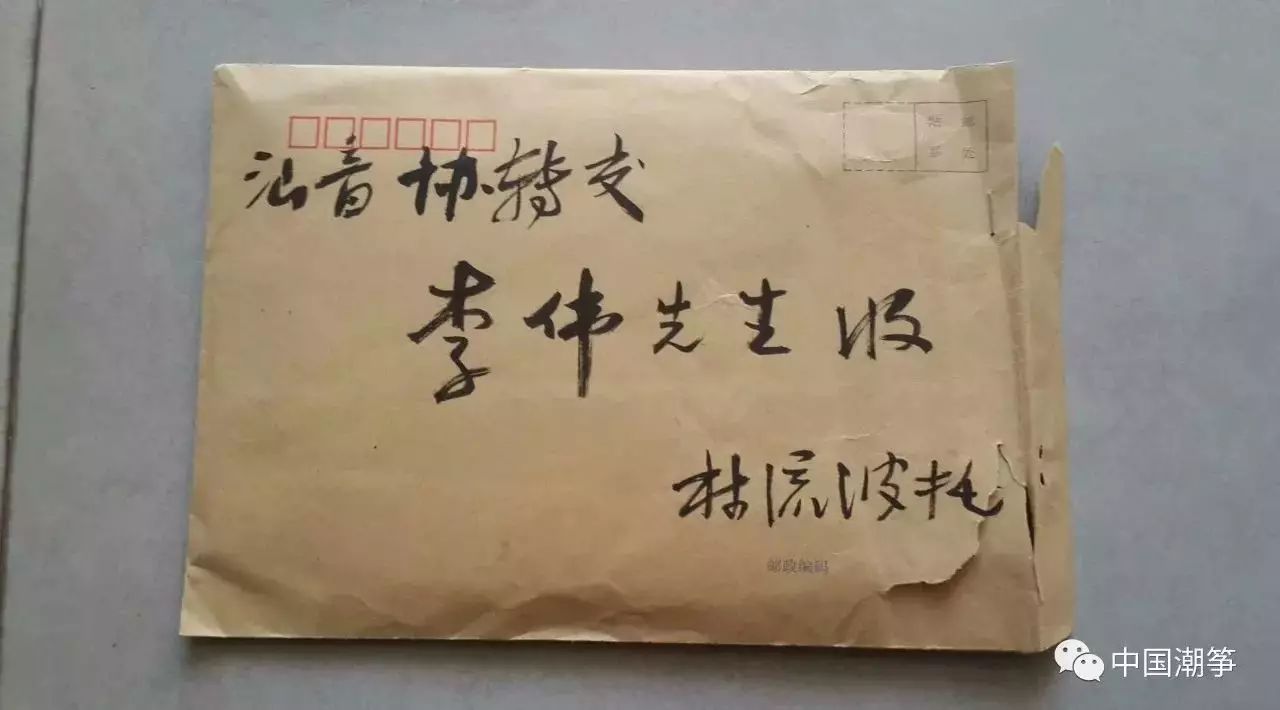 贴 邮
票 处
汕音协转交
李伟先生收
林流波托
邮政编码
中国潮筝